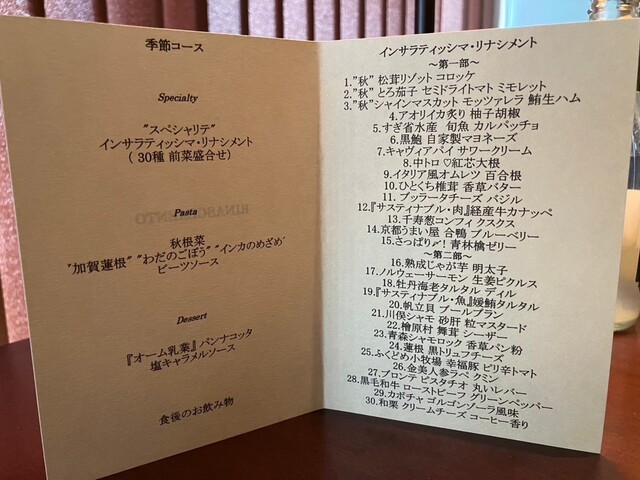 季節コース
Specialty
"スペシャリテ"
インサラティッシマ・リナシメント
( 30種 前菜盛合せ)
Pasta
秋根菜
"加賀蓮根" "わだのごぼう" "インカのめざめ"
ビーツソース
Dessert
『オーム乳業』パンナコッタ
塩キャラメルソース
食後のお飲み物
インサラティッシマ・リナシメント
～第一部～
1."秋" 松茸リゾット コロッケ
2."秋" とろ茄子 セミドライトマト ミモレット
3."秋"シャインマスカット モッツァレラ 鮪生ハム
4.アオリイカ炙り 柚子胡椒
5.すぎ省水産 旬魚 カルパッチョ
6.黒鮑 自家製マヨネーズ
7.キャヴィアパイ サワークリーム
8.中トロ♡紅芯大根
9.イタリア風オムレツ 百合根
10.ひとくち椎茸 香草バター
11.ブッラータチーズ バジル
12.『サスティナブル・肉』経産牛カナッペ
13.千寿葱コンフィ クスクス
14.京都うまい屋 合鴨 ブルーベリー
15.さっぱり〆! 青林檎ゼリー
～第二部～
16.熟成じゃが芋 明太子
17.ノルウェーサーモン 生姜ピクルス
18.牡丹海老タルタル ディル
19.『サスティナブル・魚』媛鮪タルタル
20.帆立貝 ブールブラン
21.川俣シャモ 砂肝 粒マスタード
22.檜原村 舞茸 シーザー
23.青森シャモロック 香草パン粉
24.蓮根 黒トリュフチーズ
25.ふくどめ小牧場 幸福豚 ピリ辛トマト
26.金美人参ラペ クミン
27.ブロンテ ピスタチオ 丸いレバー
28.黒毛和牛 ローストビーフ グリーンペッパー
29.カボチャ ゴルゴンゾーラ風味
30.和栗 クリームチーズ コーヒー香り